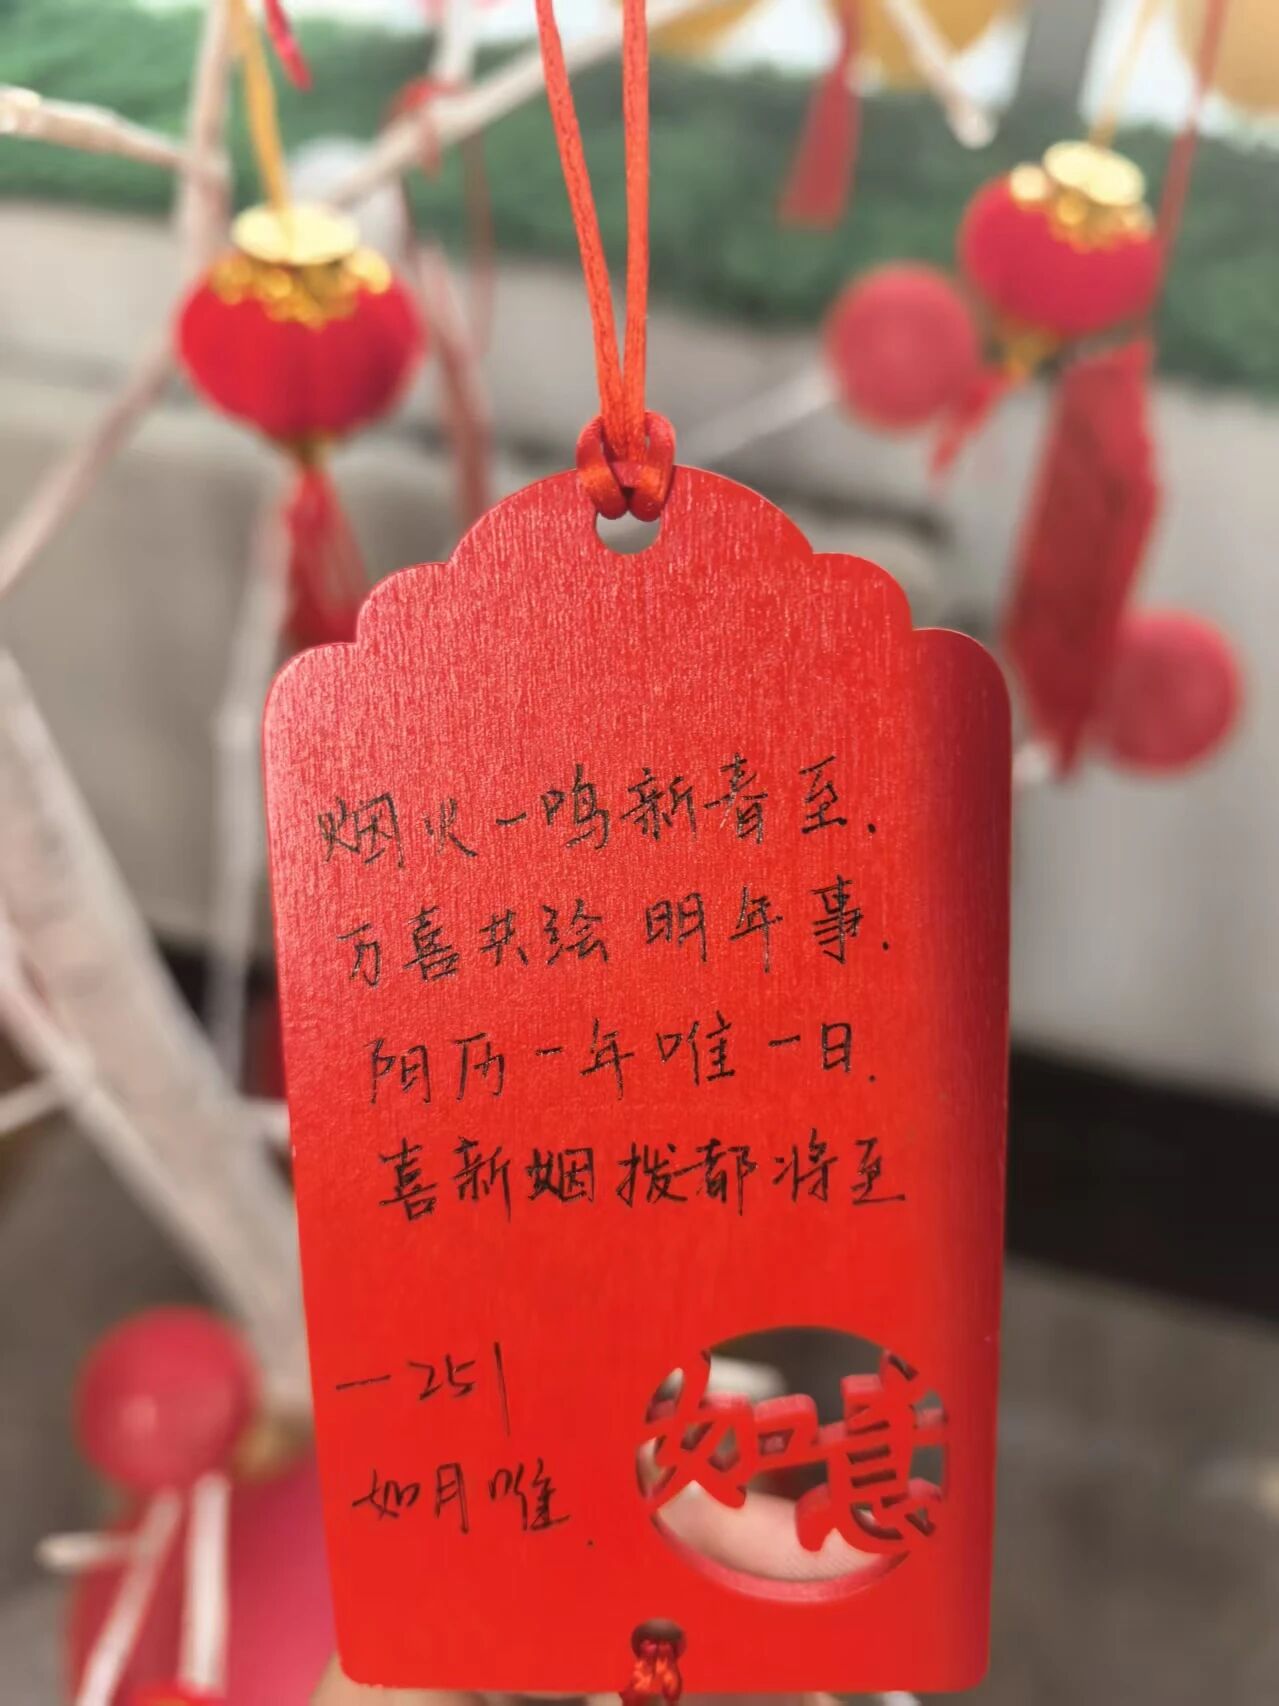 烟火一鸣新春至.
万喜共绘明年事.
阳历一年唯一日.
喜新烟拨都将至
—251
如月唯.
如意